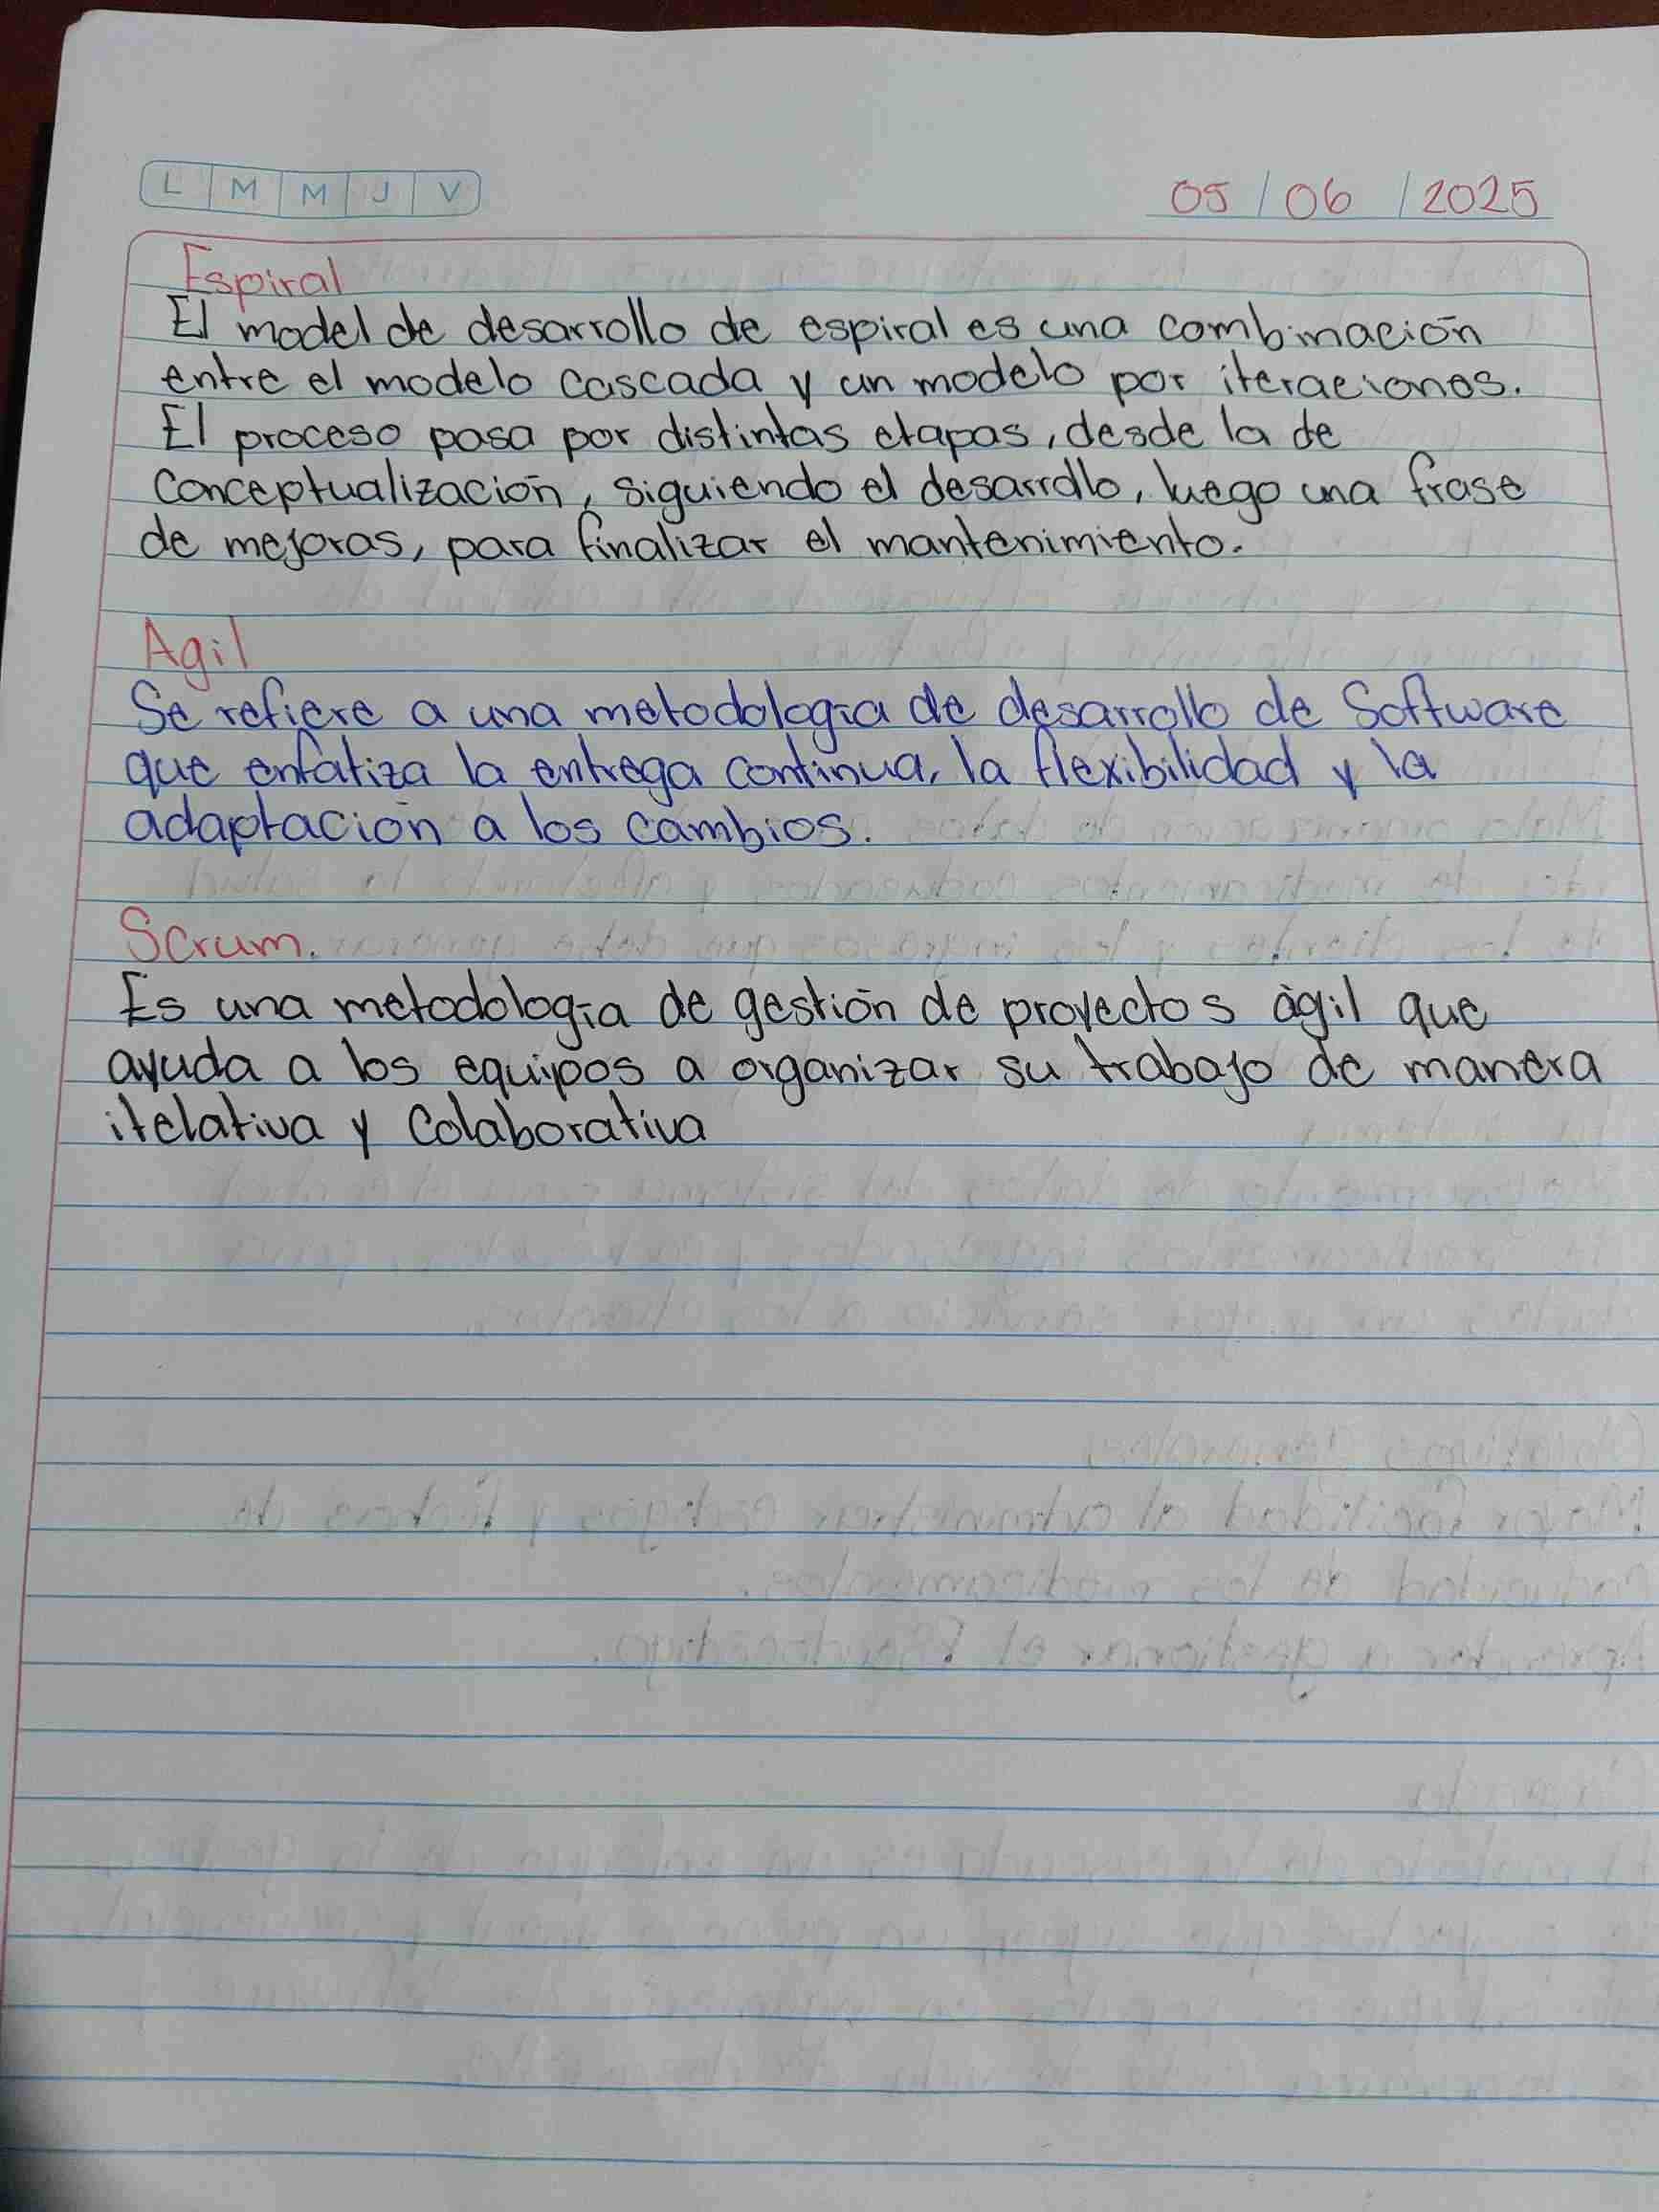 L M M J V
05/06/2025
Espiral
El model de desarrollo de espiral es una combinación
entre el modelo cascada y un modelo por iteraciones.
El proceso pasa por distintas etapas, desde la de
conceptualización, siguiendo el desarrollo, luego una frase
de mejoras, para finalizar el mantenimiento.
Agil
Se refiere a una metodología de desarrollo de Software
que enfatiza la entrega continua, la flexibilidad y la
adaptación a los cambios.
Scrum.
Es una metodología de gestión de proyectos ágil que
ayuda a los equipos a organizar su trabajo de manera
itelativa y Colaborativa